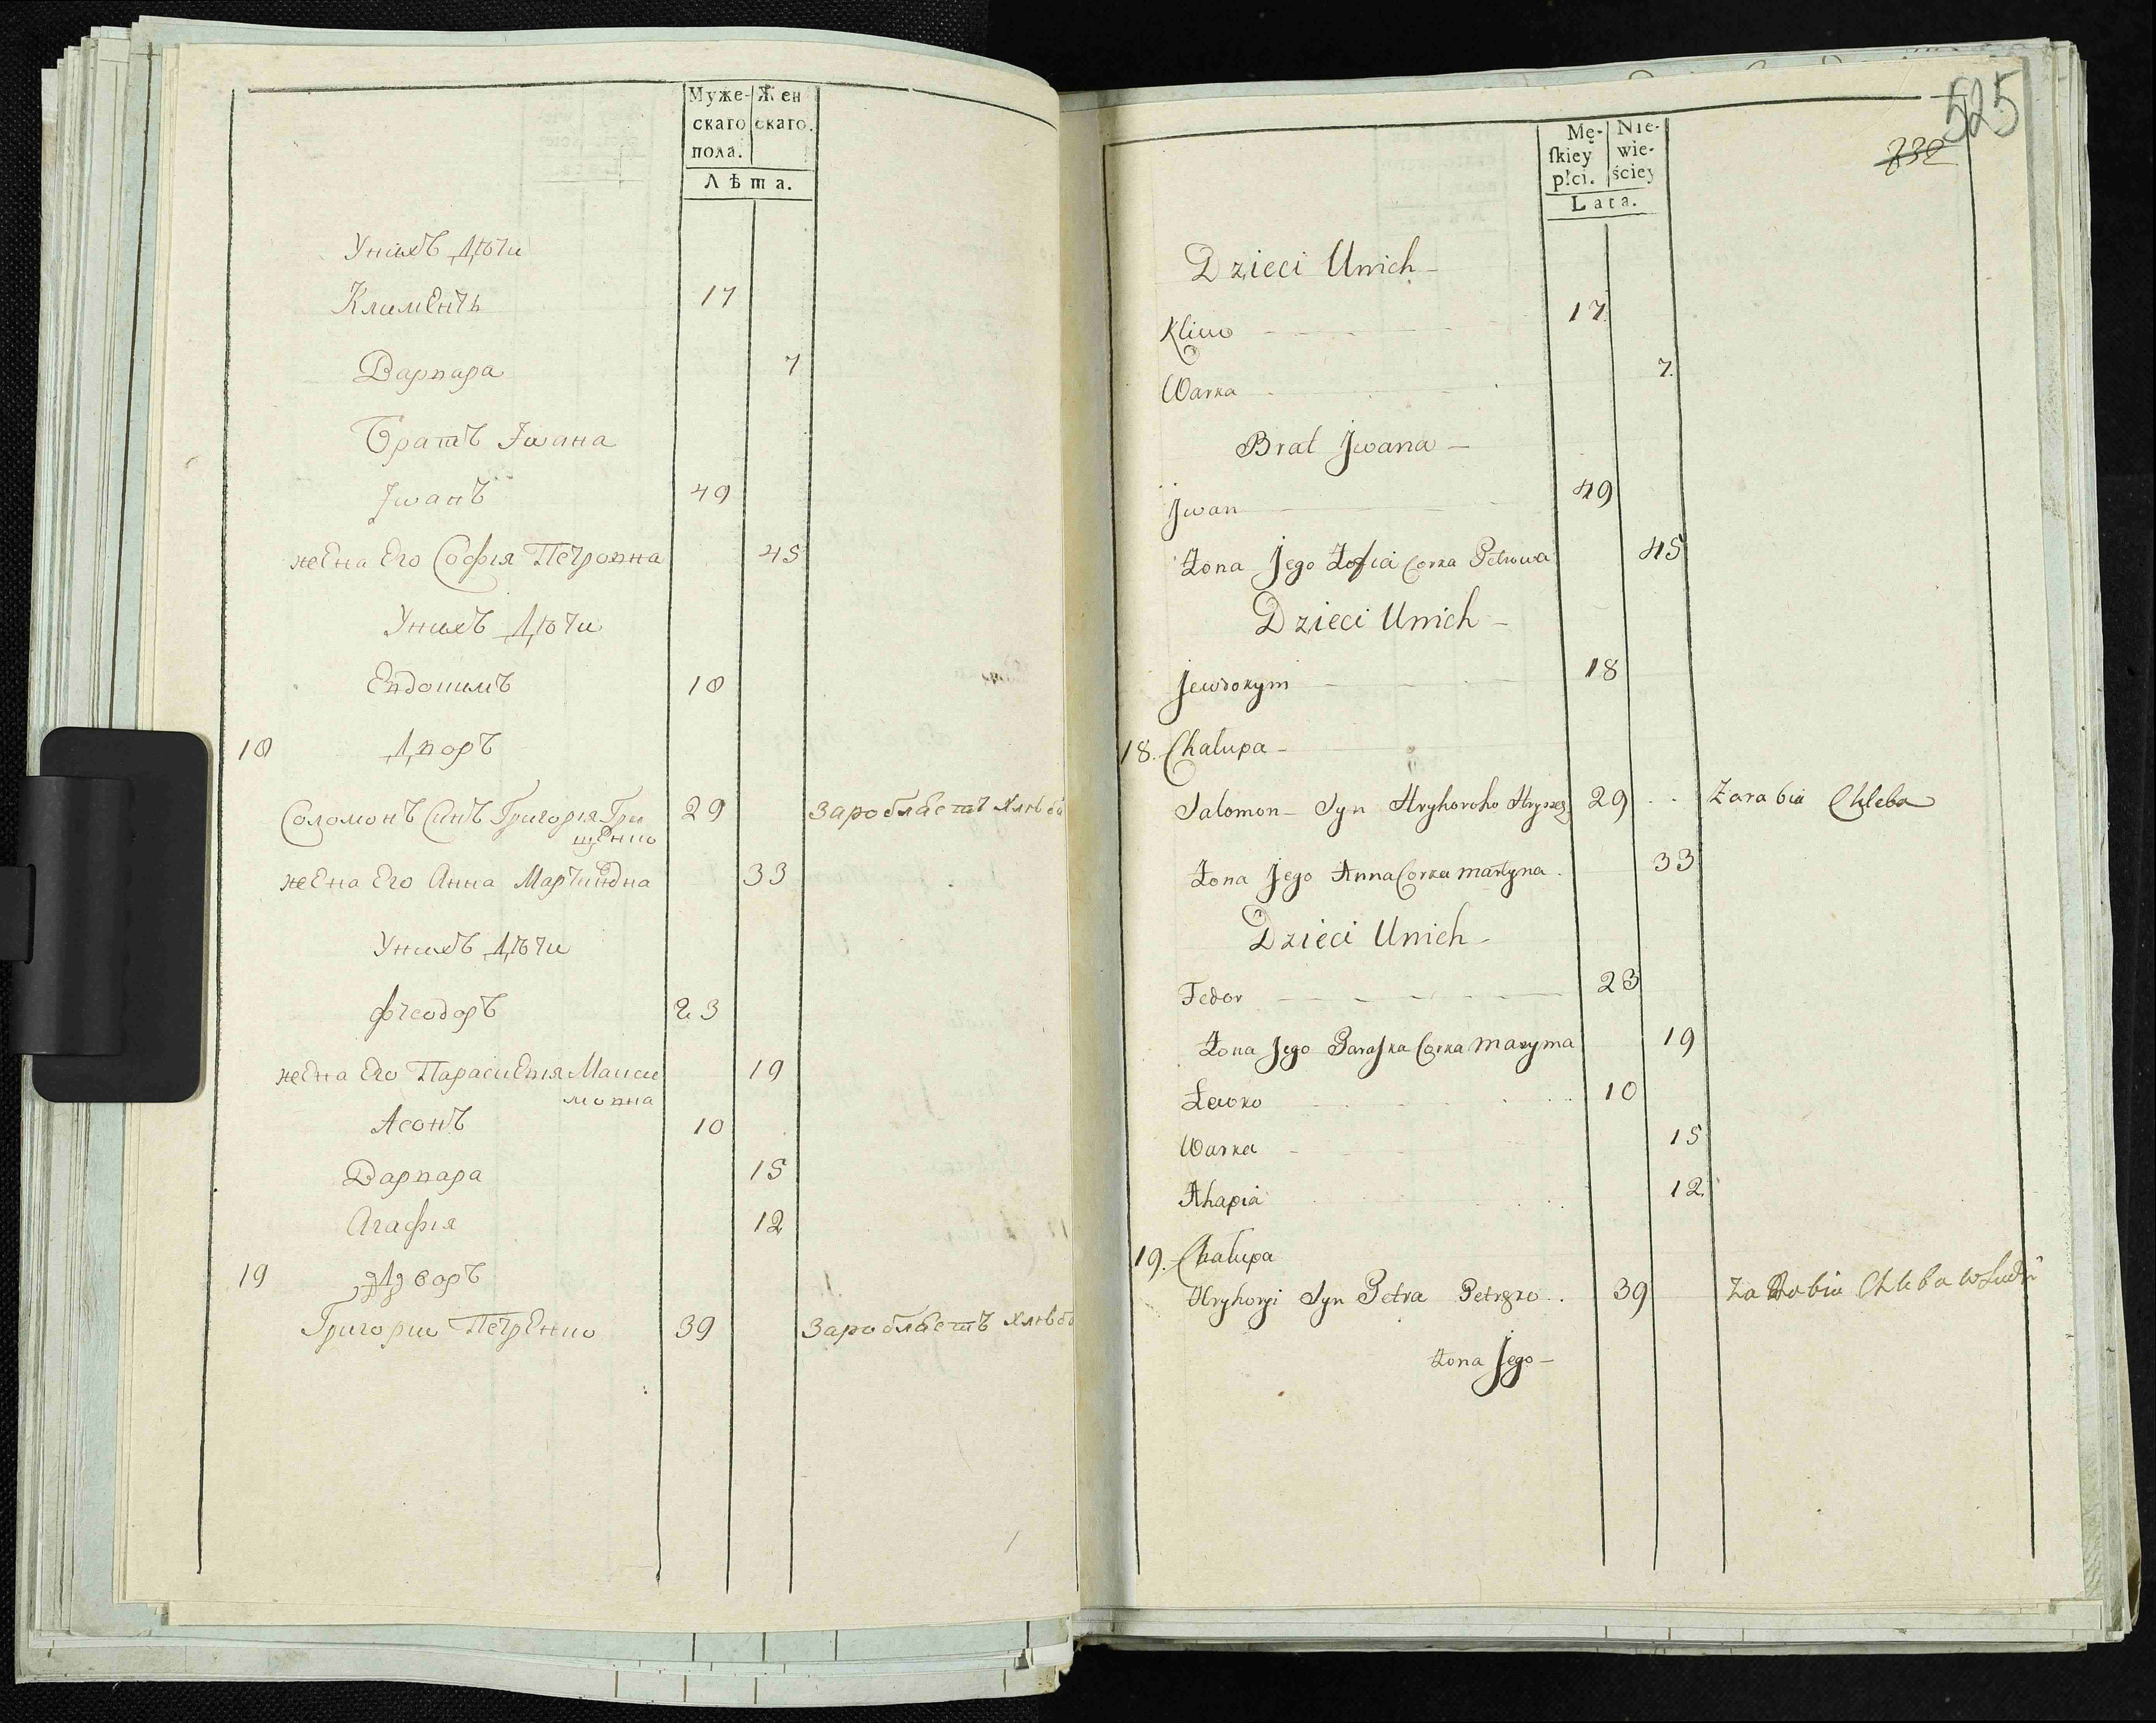 Муже-
скаго
пола.
Жен
скаго.
Лѣта.
Унихъ Дѣти
Климентъ 17
Варвара 7
Братъ Iвана
Iванъ 49
жена Его Софiя Петровна 45
Унихъ Дѣти
Евдокимъ 18
18 Дворъ
Соломонъ Синъ Григорiя Гри 29 Зароблаетъ хлѣба
щенко
жена Его Анна Мартиновна 33
Унихъ Дѣти
Феодоръ 23
жена Его Параскевiя Макси 19
мовна
Леонъ 10
Варвара 15
Агафiя 12
19 Дворъ
Григории Петренко 39 Зароблаетъ хлѣба
525
232
Mę-
ſkiey
płci.
Nie-
wie-
ściey
Lata.
Dzieci Unich
Klim 17
Warka 7
Brat Jwana
Jwan 49
Żona Jego Zofia Corka Petrowa 45
Dzieci Unich
Jewdokym 18
18. Chalupa
Salomon Syn Hryhoroho 29 Zarabia Chleba
Żona Jego Anna Corka Martyna 33
Dzieci Unich
Fedor 23
Żona Jego Paraska Corka Maxyma 19
Lewko 10
Warka 15
Ahapia 12
19. Chalupa
Hryhoryi Syn Petra 39 Zarobia Chleba
Żona Jego